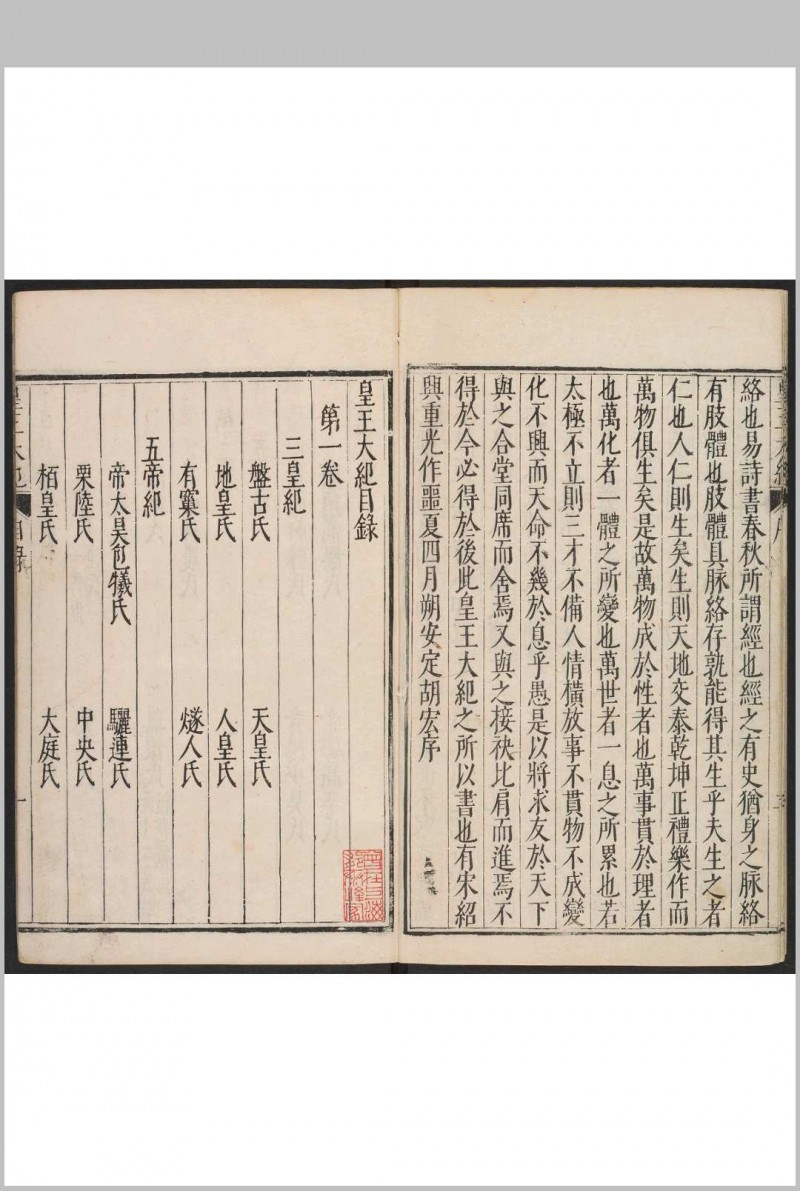 絡也易詩書春秋所謂經也經之有史猶身之脉絡
有肢體也肢體具脉絡存孰能得其生乎夫生之者
仁也人仁則生矣生則天地交泰乾坤正禮樂作而
萬物俱生矣是故萬物成於性者也萬事貫於理者
也萬化者一體之所變也萬世者一息之所累也若
太極不立則三才不備人情橫放事不貫物不成變
化不興而天命不幾於息乎愚是以將求友於天下
與之合堂同席而舍焉又與之接袂比肩而進焉不
得於今必得於後此皇王大紀之所以書也有宋紹
興重光作噩夏四月朔安定胡宏序
皇王大紀目錄
第一卷
三皇紀
盤古氏 天皇氏
地皇氏 人皇氏
有巢氏 燧人氏
五帝紀
帝太昊包犧氏 驪連氏
栗陸氏 中央氏
栢皇氏 大庭氏
目錄 一